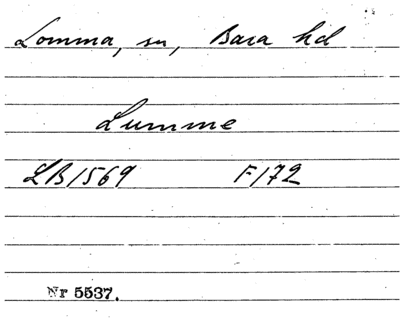 Lomma, sn, Bara hd
Lumme
LB 1569 F172
Nr 5537.